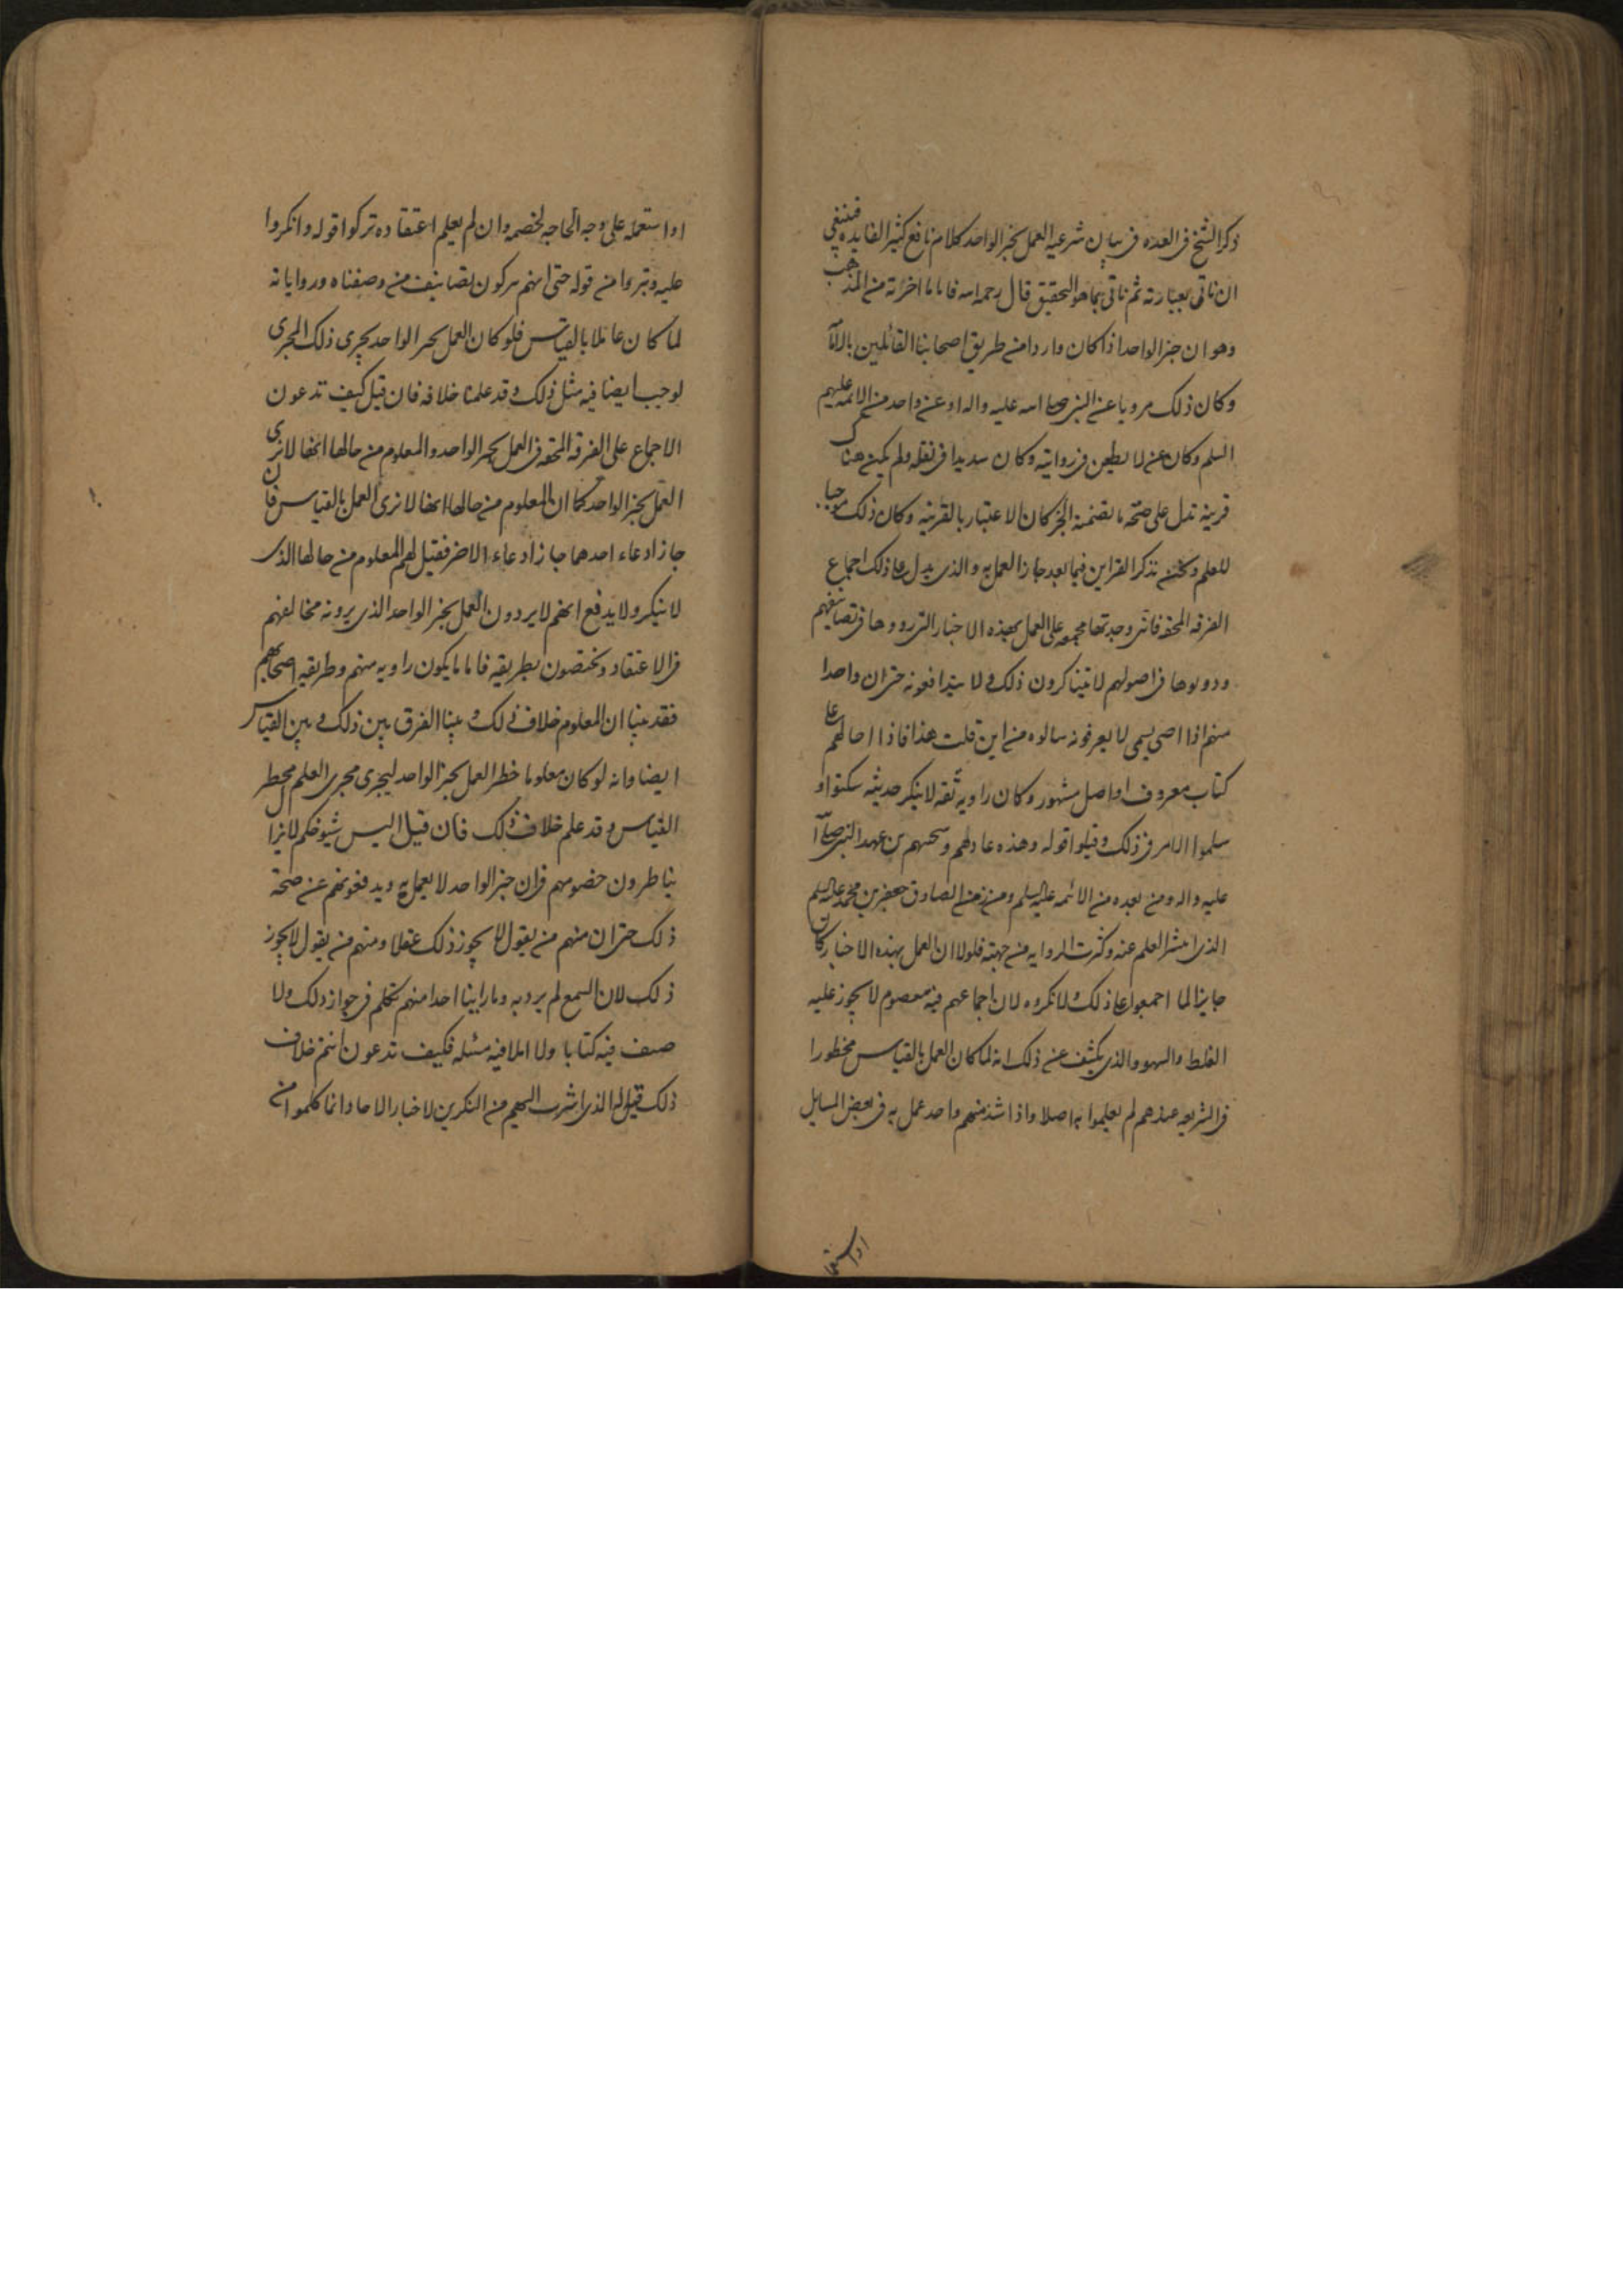 ذكر الشيخ فى العده فى بيان شرعيه العمل بخبر الواحد كلام نافع كثير الفايده فينبغى
ان ناتى بعبارته ثم ناتى بما هو التحقيق قال رحمه اسه فاما ما اخترته من المذهب
وهو ان خبر الواحد اذا كان واردا من طريق اصحابنا القائلين بالامامة
وكان ذلك مرويا عن النبى صلى اسه عليه واله او عن واحد من الائمه عليهم
السلم وكان ممن لا يطعن فى روايته وكان سديدا فى نقله ولم يكن هناك
قرينه تدل على صحه ما تضمنه الخبر كان الاعتبار بالقرينه وكان ذلك موجبا
للعلم ونحن نذكر القراين فيما بعد جاز العمل به والذى يدل على ذلك اجماع
الفرقه المحقه فانى وجدتها مجمعه على العمل بهذه الاخبار التى رووها فى تصانيفهم
ودونوها فى اصولهم لا يتناكرون ذلك ولا يتدافعونه حتى ان واحدا
منهم اذا افتى بشى لا يعرفونه سالوه من اين قلت هذا فاذا احالهم على
كتاب معروف او اصل مشهور وكان راويه ثقه لا ينكر حديثه سكتوا و
سلموا الامر فى ذلك وقبلوا قوله وهذه عادتهم وسجيتهم من عهد النبى صلى ا
عليه واله ومن بعده من الائمه عليه السلم ومن زمن الصادق جعفر بن محمد عليه السلم
الذى انتشر العلم عنه وكثرت الروايه من جهته فلولا ان العمل بهذه الاخبار كان
جايزا لما اجمعوا على ذلك ولا نكروه لان اجماعهم فيه معصوم لا يجوز عليه
الغلط والسهو والذى يكشف عن ذلك انه لما كان العمل بالقياس محظورا
فى الشريعه عندهم لم يعلموا به اصلا واذا شذ منهم واحد عمل به فى بعض المسايل
او استعمله
او استعمله على وجه المحاجه لخصمه وان لم يعلم اعتقاده تركوا قوله وانكروا
عليه وتبروا من قوله حتى انهم يتركون تصانيف من وصفناه ورواياته
لما كان عاملا بالقياس فلو كان العمل بخبر الواحد يجرى ذلك المجرى
لوجب ايضا فيه مثل ذلك وقد علمنا خلافه فان قيل كيف تدعون
الاجماع على الفرقه المحقه فى العمل بخبر الواحد والمعلوم من حالها انها لا ترى
العمل بخبر الواحد كما ان المعلوم من حالها انها لا ترى العمل بالقياس فان
جاز ادعاء احدهما جاز ادعاء الاخر فقيل لهم المعلوم من حالها الذى
لا ينكر ولا يدفع انهم لا يردون العمل بخبر الواحد الذى يرونه مخالفهم
فى الاعتقاد ويختصون بطريقه فاما ما يكون راويه منهم وطريقه اصحابهم
فقد بينا ان المعلوم خلاف ذلك وبينا الفرق بين ذلك وبين القياس
ايضا وانه لو كان معلوما خطر العمل بخبر الواحد ليجرى مجرى العلم بحظر
القياس وقد علم خلاف ذلك فان قيل اليس شيوخكم لا يزال
يناظرون خصومهم فى ان خبر الواحد لا يعمل به ويدفعونهم عن صحة
ذلك حتى ان منهم من يقول لا يجوز ذلك عقلا ومنهم من يقول لا يجوز
ذلك لان السمع لم يرد به وما راينا احدا منهم تكلم فى جواز ذلك ولا
صنف فيه كتابا ولا املا فيه مسئله فكيف تدعون انتم خلاف
ذلك قيل له الذى اشرت اليهم من المنكرين لاخبار الاحاد انما كلموا من